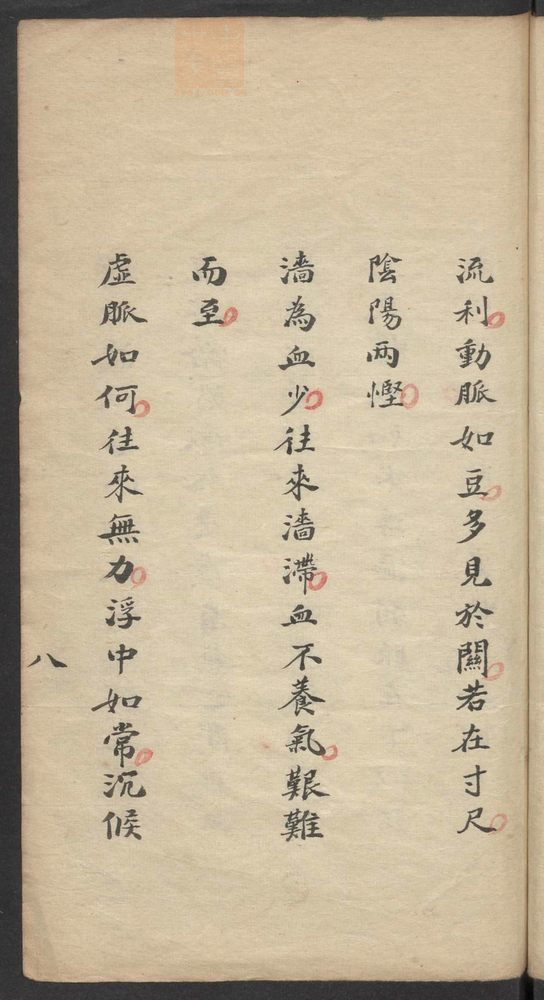 流利動脈如豆多見於關若在寸尺
陰陽兩慳
濇為血少往來濇滯血不養氣艱難
而至
虛脈如何往來無力浮中如常沉候
八